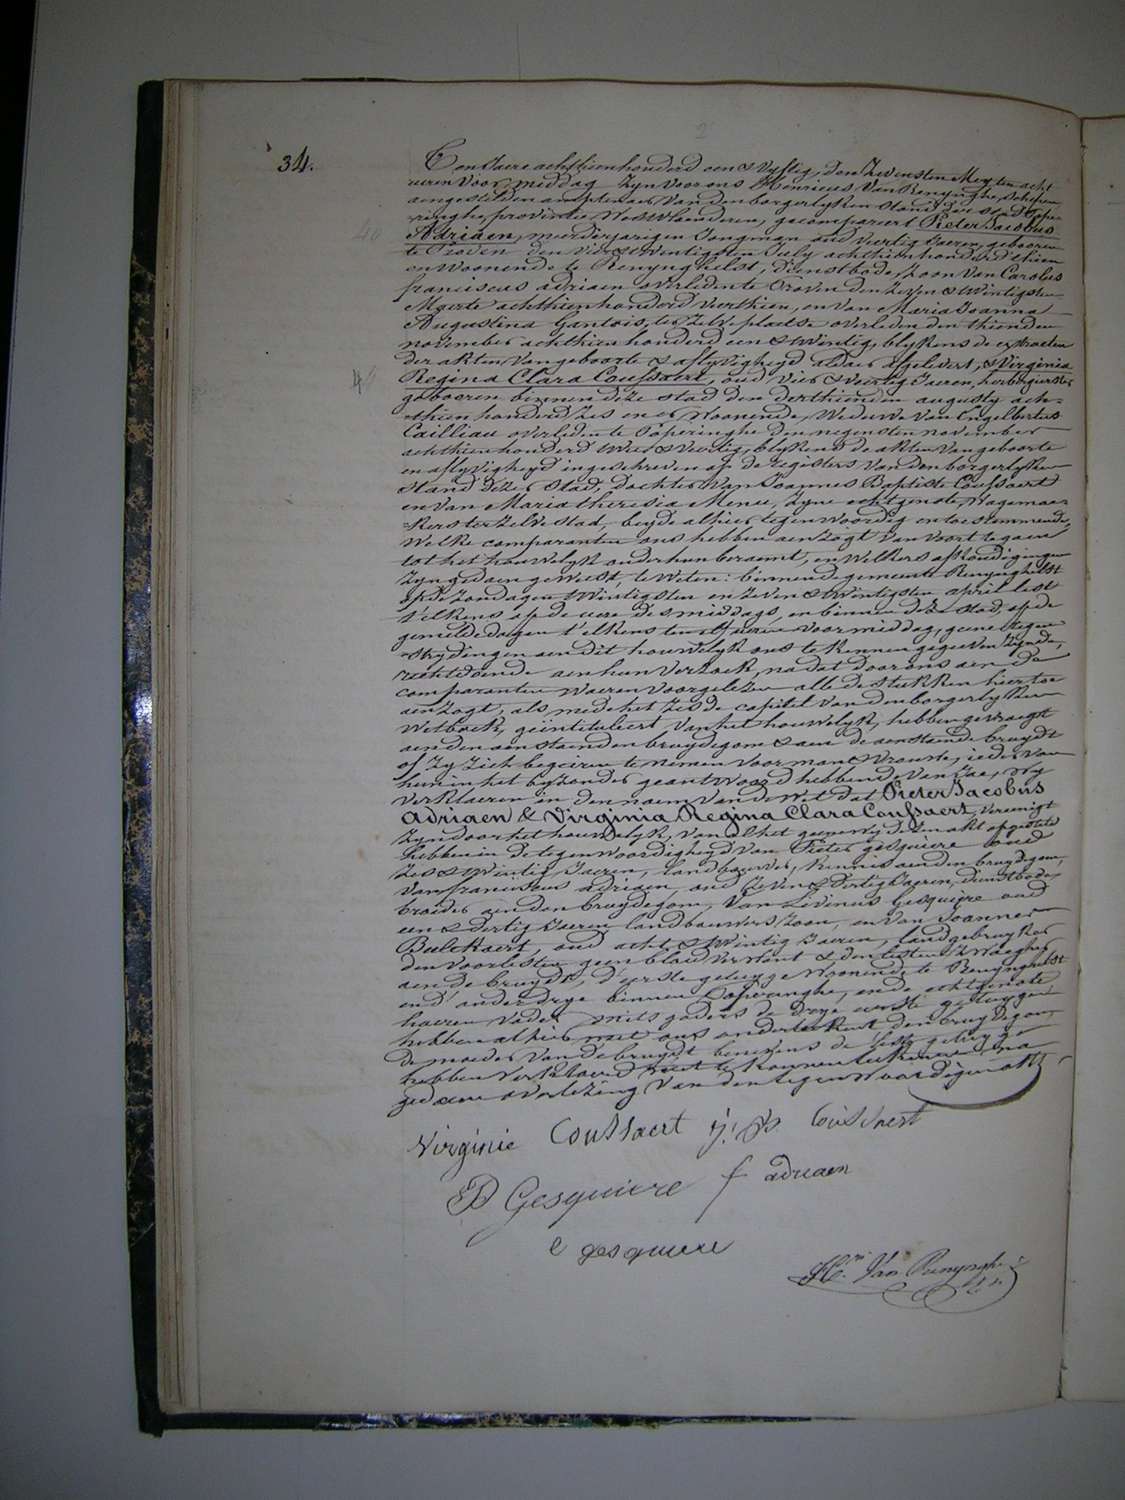 34.
Ten Jaere achthienhonderd een & vyftig, den zevensten Mey ten acht
uren Voormiddag zyn voor ons Henricus Van Renynghe, schepen
amptenaer van den borgerlyken stand der stad Pope-
ringhe, provintie Westvlaenderen, gecompareert Pieter Jacobus
40
Adriaen, meerderjarigen Jongman oud veertig Jaeren, geboren
te Proven den vier & twintigsten July achthienhonderd thien
en woonende te Renynghelst, dienstbode, zoon van Carolus
franciscus adriaen overleden te Proven den zeven & twintigsten
Maerte achthienhonderd veerthien, en van Maria Joanna
Augustina Gantois, ter zelve plaetse overleden den thienden
november achthien honderd een & twintig, blykens de extracten
der akten van geboorte & aflyvigheyd aldaer afgelevert, & Virginia
Regina Clara Coussaert, oud vier & veertig Jaeren, herbergierster
geboren binnen deze stad den derthienden augusty acht-
thien honderd zes en er woonende, Weduwe van Engelbertus
Cailliau overleden te Poperinghe den negensten november
achthienhonderd & veertig, blykens de akten van geboorte
en aflyvigheyd ingeschreven op de registers van den borgerlyken
stand dezer stad, dochter van Joannes Baptiste Coussaert
en van Maria theresia Menu, zyne echtgenote, Wagemae-
kers ter zelve stad, beyde alhier tegenwoordig en toestemmende,
Welke comparanten ons hebben aenzogt van voort te gaen
tot het houwelyk onder hun beraemt, en welkers afkondigingen
zyn gedaen geweest, te weten: binnen de gemeente Renynghelst
op de zondagen twintigsten en zeven & twintigsten april lest
t'elkens op de uere des middags, en binnen deze stad, op de
gemelde dagen t'elkens ten uren voormiddag, geene tegen-
strydingen aen dit houwelyk ons te kennen gegeven zynde,
rechtdoende aen hun verzoek, na dat door ons aen de
comparanten waeren voorgelezen alle de stukken hier toe
aenzogt, als mede het zesde capitel van den borgerlyken
Wetboek, geïntituleert van het houwelyk, hebben gevraegt
aen den aenstaenden bruydegom & aen de aenstaende bruydt
of zy zich begeiren te nemen voor man & vrouwe, ieder van
hun in het byzonder geantwoord hebbende van Jae, wy
verklaeren in den naem van de Wet dat Pieter Jacobus
Adriaen & Virginia Regina Clara Coussaert, vereenigt
zyn door het houwelyk, van al het geene wy dezen akt opgesteld
hebben in de tegenwoordigheyd van Pieter gesquiere oud
zes & twintig Jaeren, landbouwer, kennis aen den bruydegom,
van franciscus adriaen, oud zeven & dertig Jaeren, dienstbode,
broeder aen den bruydegom, van Livinus Gesquiere oud
een & dertig Jaeren landbouwers zoon, en van Joannes
Bulckaert, oud acht & twintig Jaeren, landgebruyker
den voorlesten geen bloedverwant & den lesten zwaeger
aen de bruydt, d'eerste getuyge woonende te Renynghelst
en d'ander drye binnen Poperinghe, en de echtgenote
haeren vader mits gaders de drye eerste getuygen
hebben alhier met ons onderteekent den bruydegom,
de moeder van de bruydt benevens de leste getuyge
hebben verklaerd niet te konnen teekenen na
gedaene voorlezing van den tegenwoordigen akt
Virginie Coussaert j. B. Coussaert
P Gesquiere f adriaen
l gesquiere
H.ri Van Renynghe